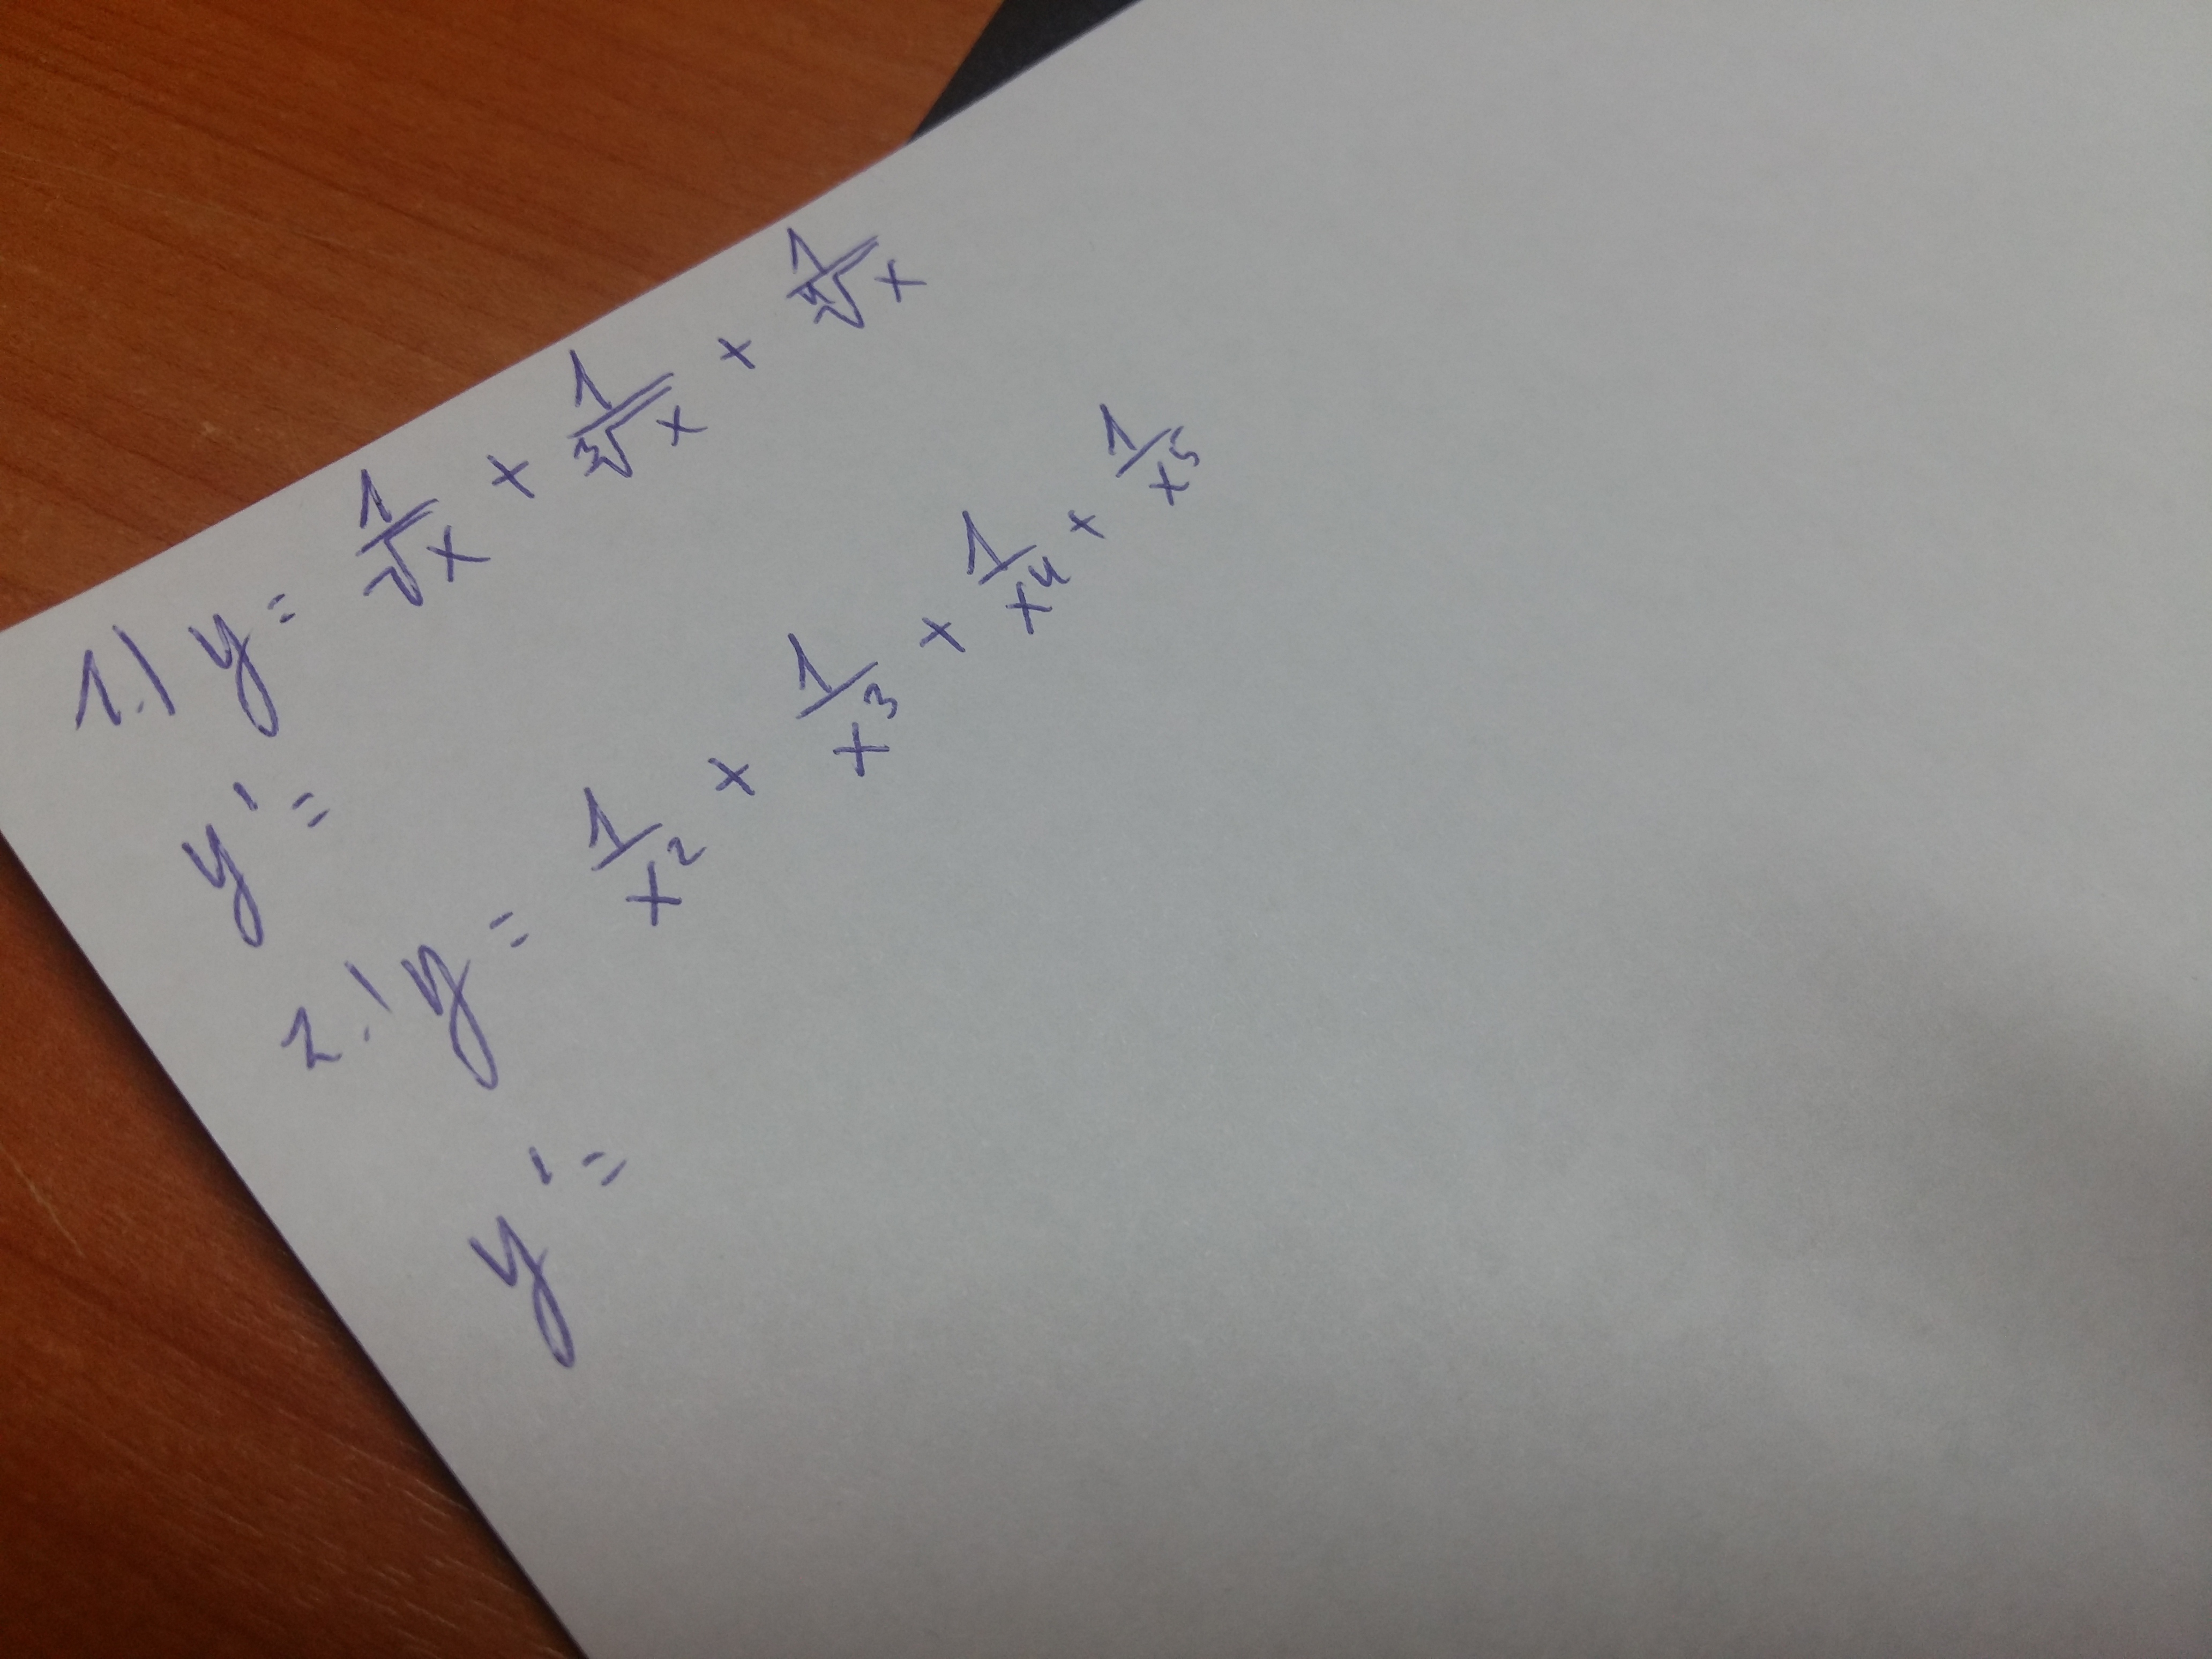 1.) y = 1/√x + 1/∛x + 1/∜x
y' =
2.) y = 1/x² + 1/x³ + 1/x⁴ + 1/x⁵
y' =